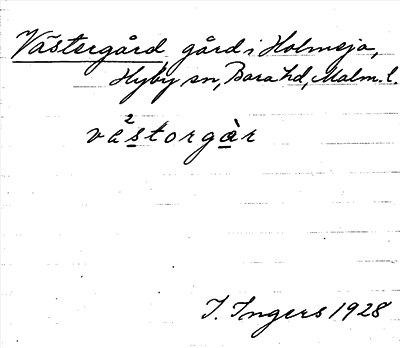 Västergård gård i Holmeja,
Hyby sn, Bara hd, Malm. l.
vä²storgàr
I. Ingers 1928